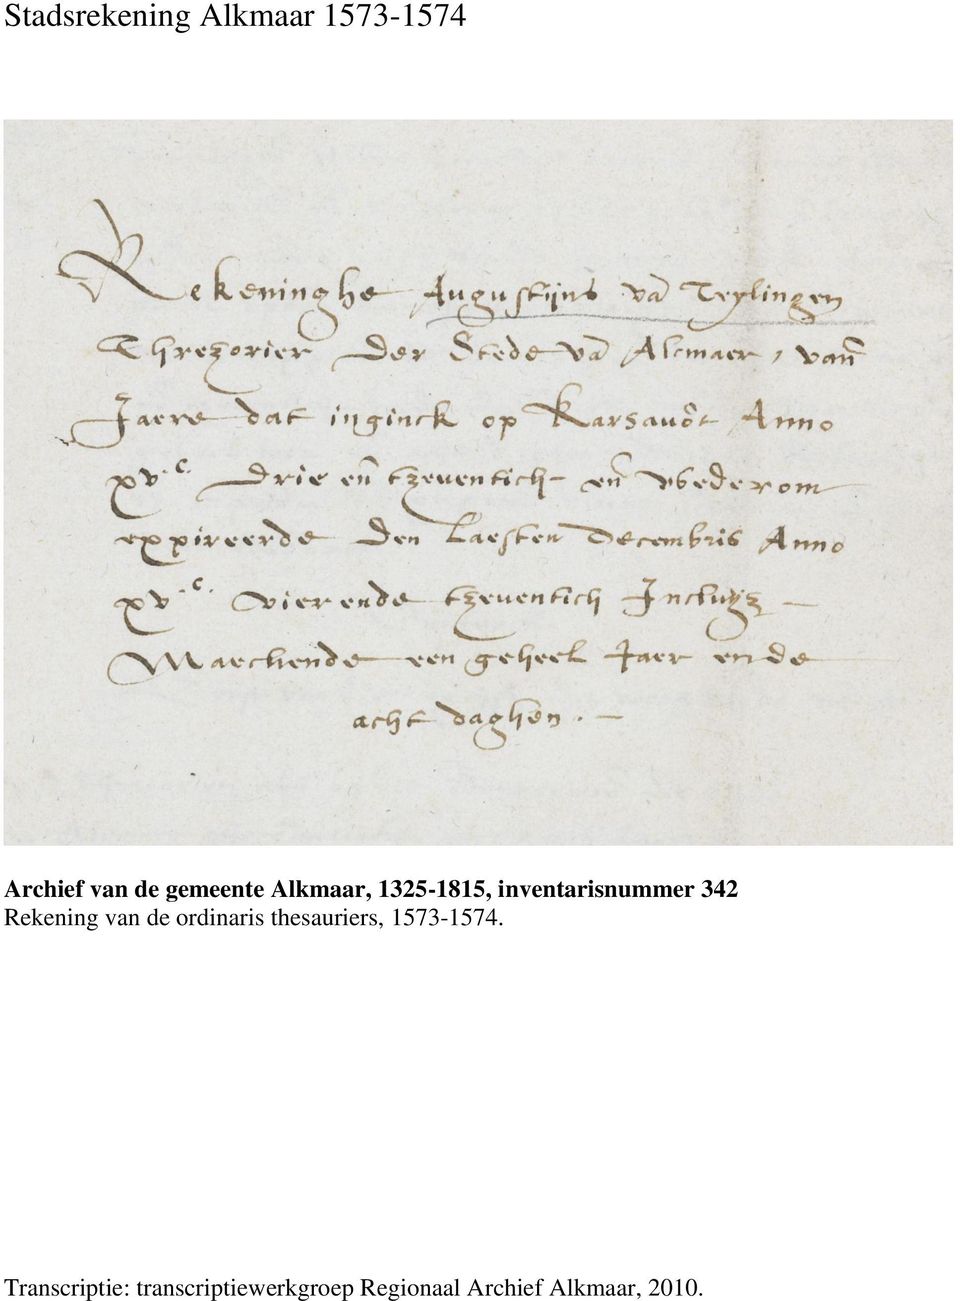 Stadsrekening Alkmaar 1573-1574
Rekeninghe Augustijns vā Teylingen
Threzorier Der Stede vā Alcmaer, vañ
Jaere dat inginck op Karsauōt Anno
xv.c. Drie eñ tzeventich eñ wederom
expireerde Den Laesten Decembris Anno
xv.c. vierende tzeventich Incluyz
Maeckende een geheel Jaer ende
acht daghen.
Archief van de gemeente Alkmaar, 1325-1815, inventarisnummer 342
Rekening van de ordinaris thesauriers, 1573-1574.
Transcriptie: transcriptiewerkgroep Regionaal Archief Alkmaar, 2010.